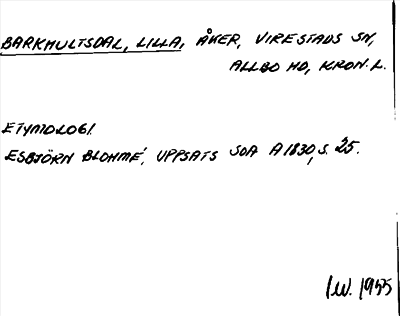 BARKHULTSDAL, LILLA, ÅKER, VIRESTADS SN,
ALLBO HD, KRON. L.
ETYMOLOGI.
ESBJÖRN BLOHMÉ, UPPSATS SOA A1830, S. 25.
I.W. 1955